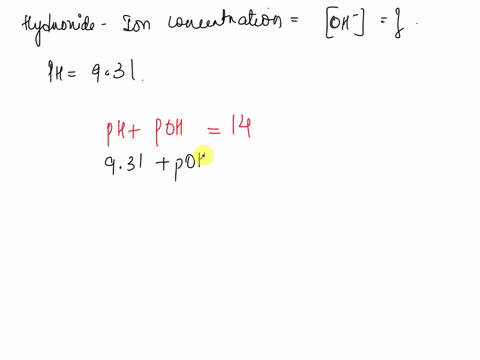 Hydronide - Ion concentration = [OH⁻] = ?.
pH = 9.31.
pH + pOH = 14
9.31 + pOH